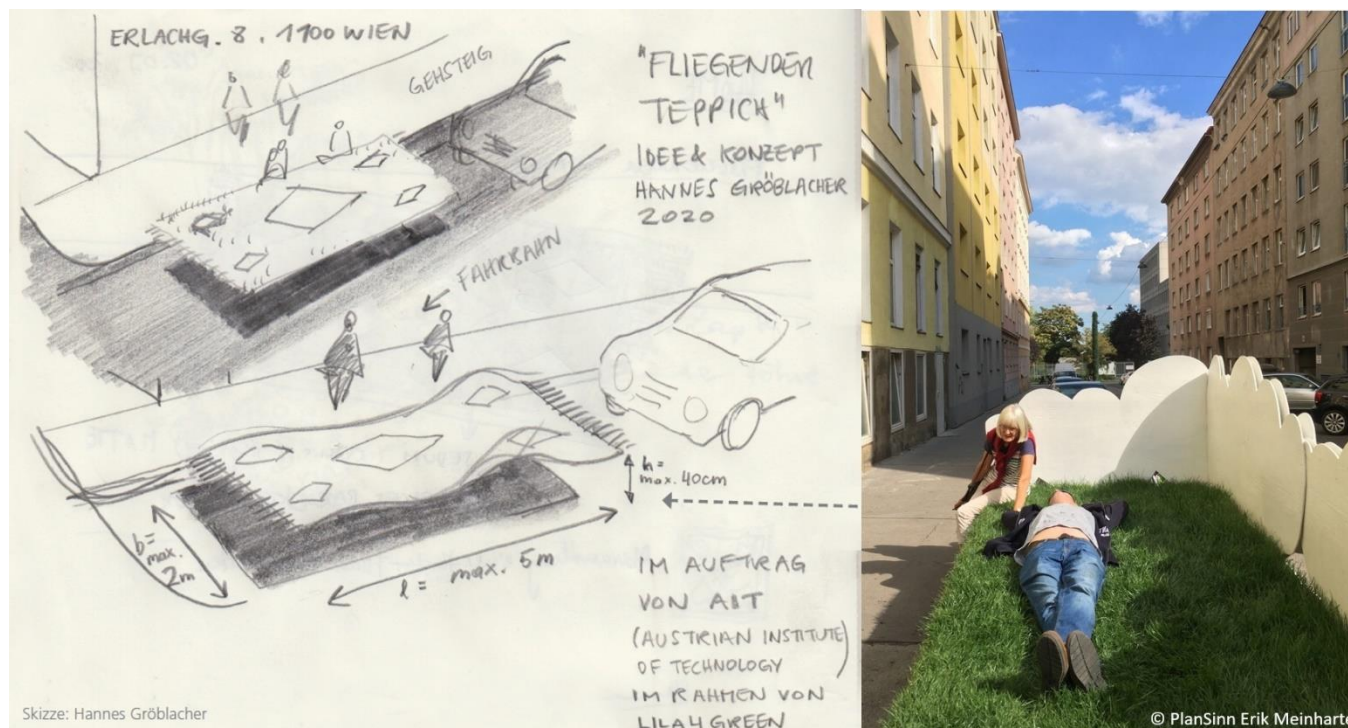 ERLACHG. 8, 1100 WIEN
GEHSTEIG
"FLIEGENDER
TEPPICH"
IDEE & KONZEPT
HANNES GRÖBLACHER
2020
FAHRBAHN
h =
max. 40cm
b =
max.
2m
l = max. 5m
IM AUFTRAG
VON AIT
(AUSTRIAN INSTITUTE
OF TECHNOLOGY)
IM RAHMEN VON
LILA4GREEN
Skizze: Hannes Gröblacher
© PlanSinn Erik Meinharte